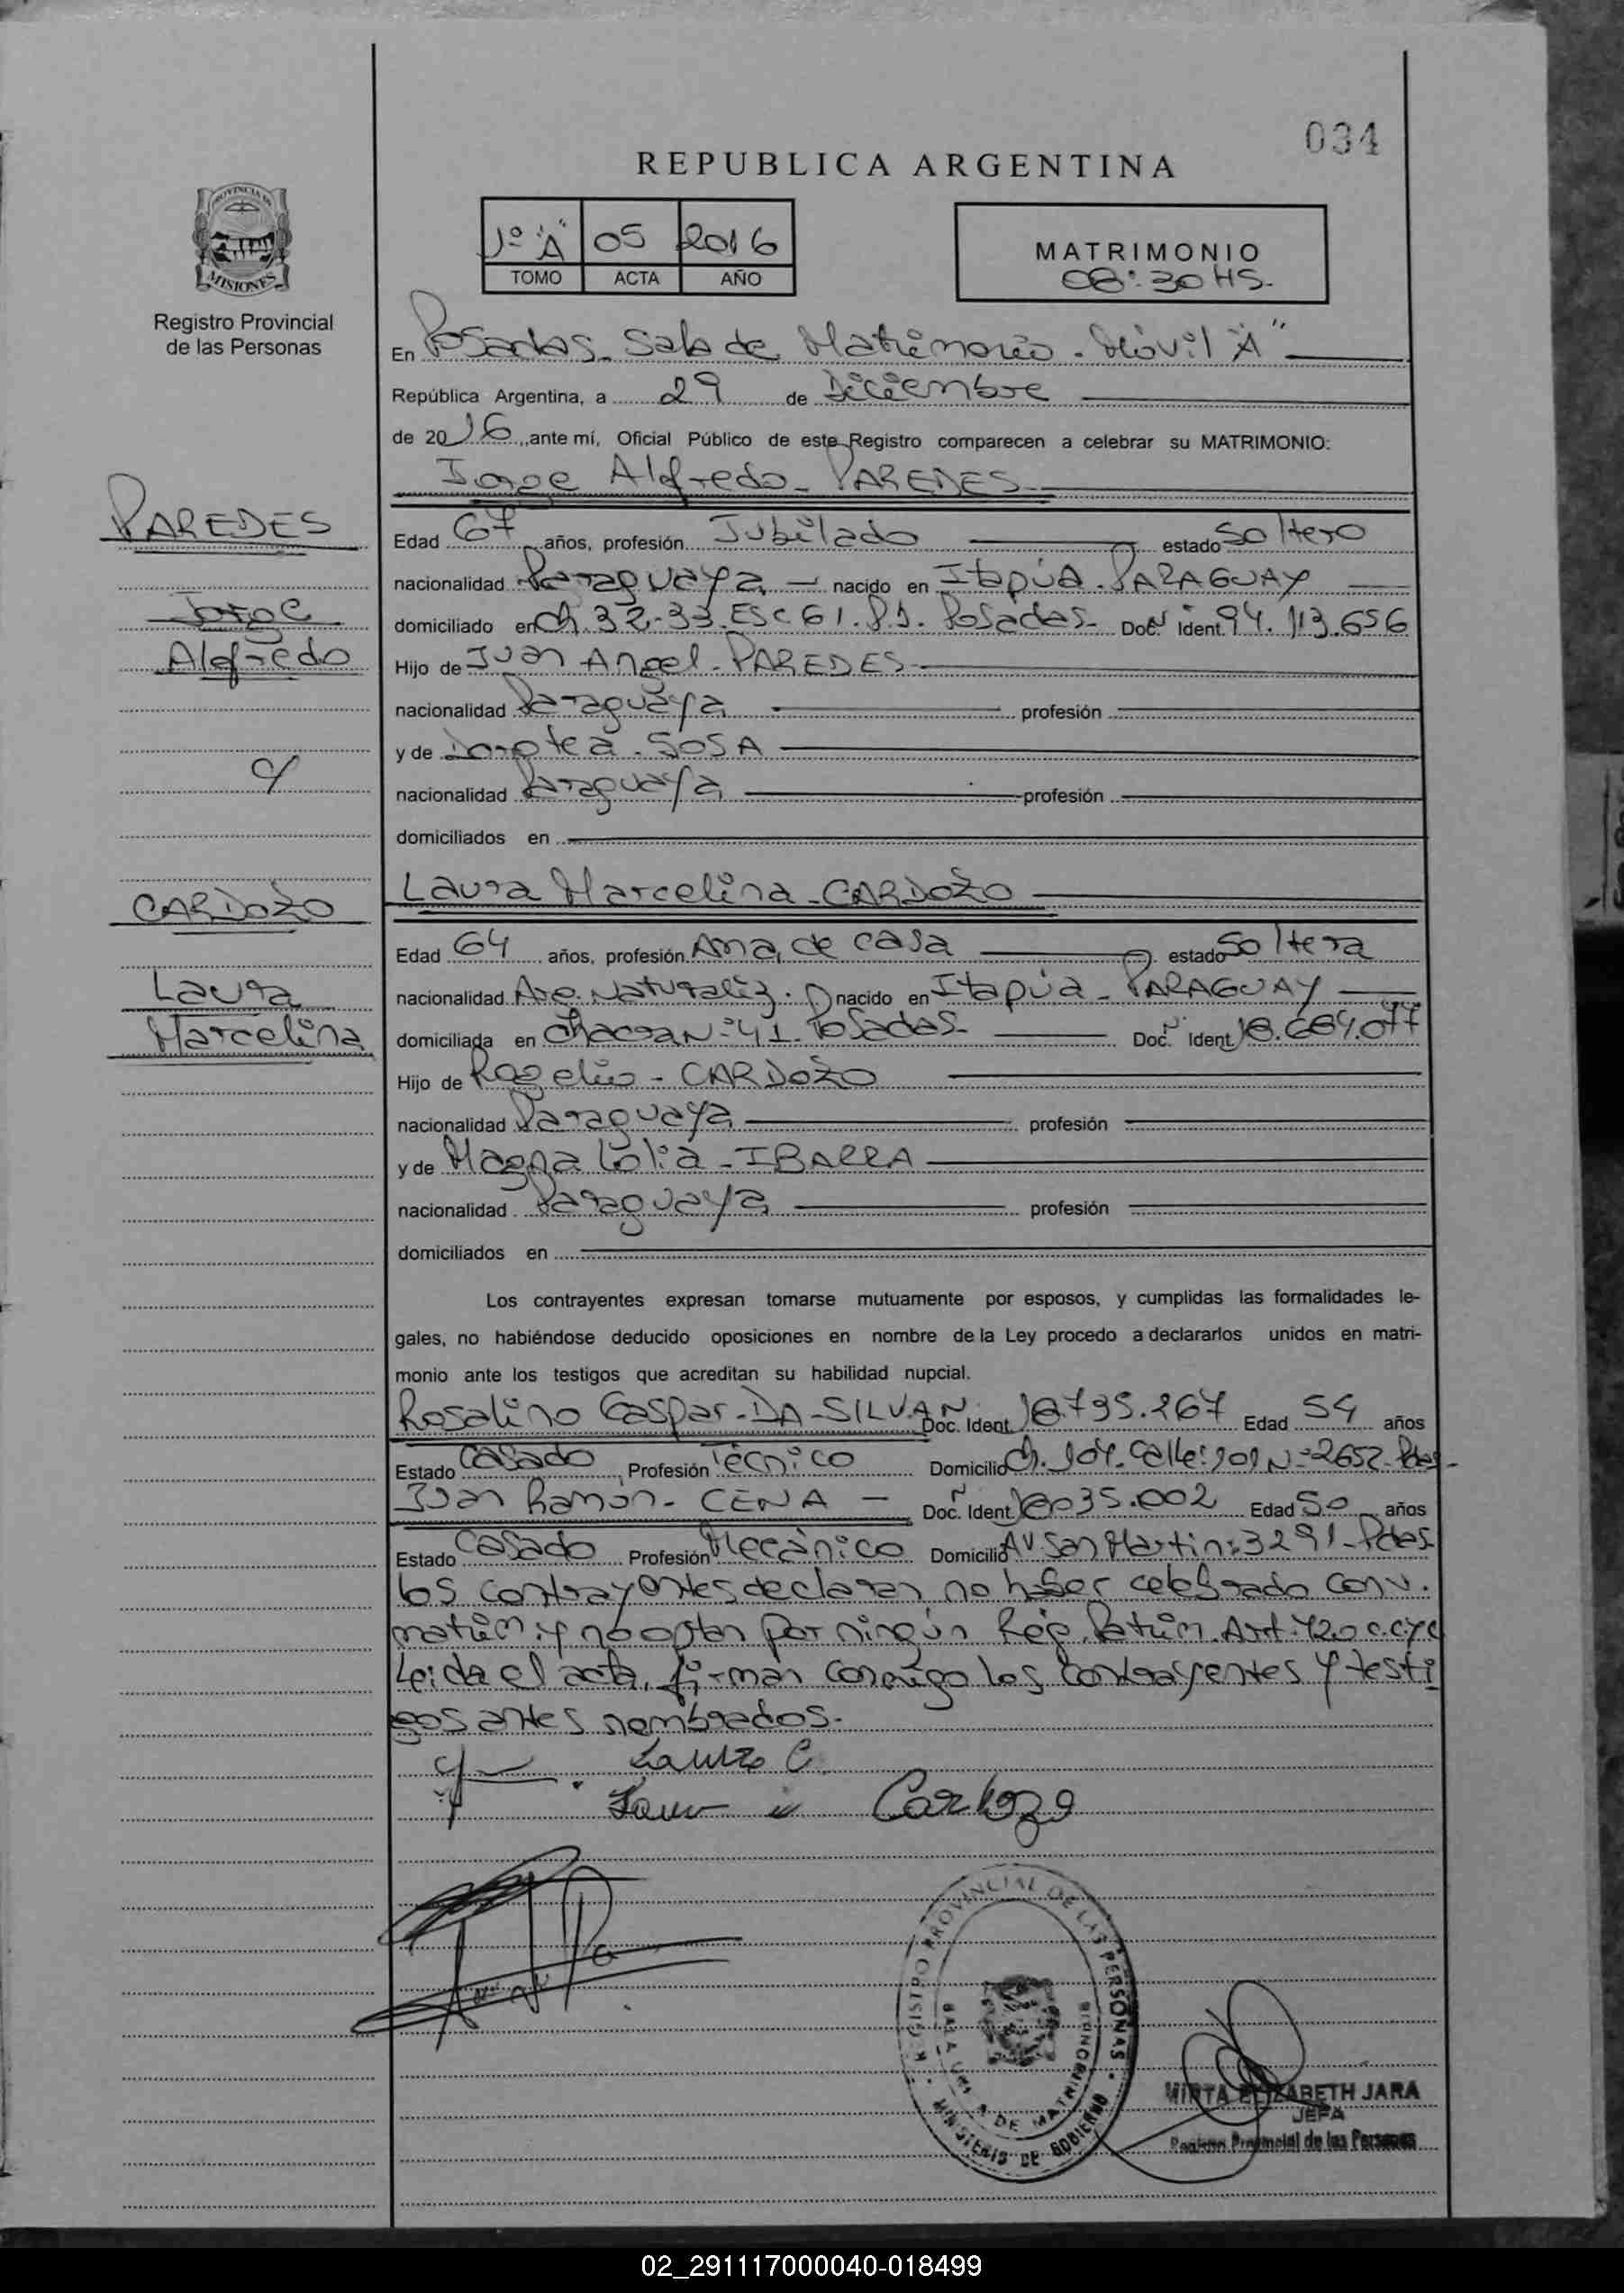 034
REPUBLICA ARGENTINA
1º "A" 05 2016
TOMO ACTA AÑO
MATRIMONIO
08:30 HS.
PROVINCIA DE
MISIONES
Registro Provincial
de las Personas
En Posadas - Sala de Matrimonio - Móvil "A"
República Argentina, a 29 de Diciembre
de 2016, ante mí, Oficial Público de este Registro comparecen a celebrar su MATRIMONIO:
Jorge Alfredo - PAREDES
PAREDES
Jorge
Alfredo
c/
CARDOZO
Laura
Marcelina
Edad 67 años, profesión Jubilado estado Soltero
nacionalidad Paraguaya - nacido en Itapúa - PARAGUAY
domiciliado en Ch. 32-33. ESC 61. P.1. Posadas - Doc. Nº Ident. 94.113.656
Hijo de Juan Angel - PAREDES
nacionalidad Paraguaya profesión
y de Dorotea - SOSA
nacionalidad Paraguaya profesión
domiciliados en
Laura Marcelina - CARDOZO
Edad 64 años, profesión Ama de casa estado Soltera
nacionalidad Arg. Naturaliz. nacido en Itapúa - PARAGUAY
domiciliada en Chacra Nº 41 - Posadas - Doc. Nº Ident. 18.684.077
Hijo de Rogelio - CARDOZO
nacionalidad Paraguaya profesión
y de Magna Lolia - IBARRA
nacionalidad Paraguaya profesión
domiciliados en
Los contrayentes expresan tomarse mutuamente por esposos, y cumplidas las formalidades le-
gales, no habiéndose deducido oposiciones en nombre de la Ley procedo a declararlos unidos en matri-
monio ante los testigos que acreditan su habilidad nupcial.
Rosalino Gaspar - DA-SILVA Nº Doc. Ident. 18.735.267 Edad 54 años
Estado Casado, Profesión Técnico Domicilio Ch. 104 - Calle: 101 Nº 2652 - Pdas -
Juan Ramón - CENA - Doc. Nº Ident. 18.035.002 Edad 50 años
Estado Casado Profesión Mecánico Domicilio Av San Martin: 3291 - Pdas
los contrayentes declaran no haber celebrado conv.
matrim. y no optan por ningún Rég. Patrim. Art. 420 c.cyc
Leída el acta, firman conmigo los contrayentes y testi
gos antes nombrados.-
Laura C.
Cardozo
REGISTRO PROVINCIAL DE LAS PERSONAS
MINISTERIO DE GOBIERNO
MIRTA ELIZABETH JARA
JEFA
Registro Provincial de las Personas
02_291117000040-018499